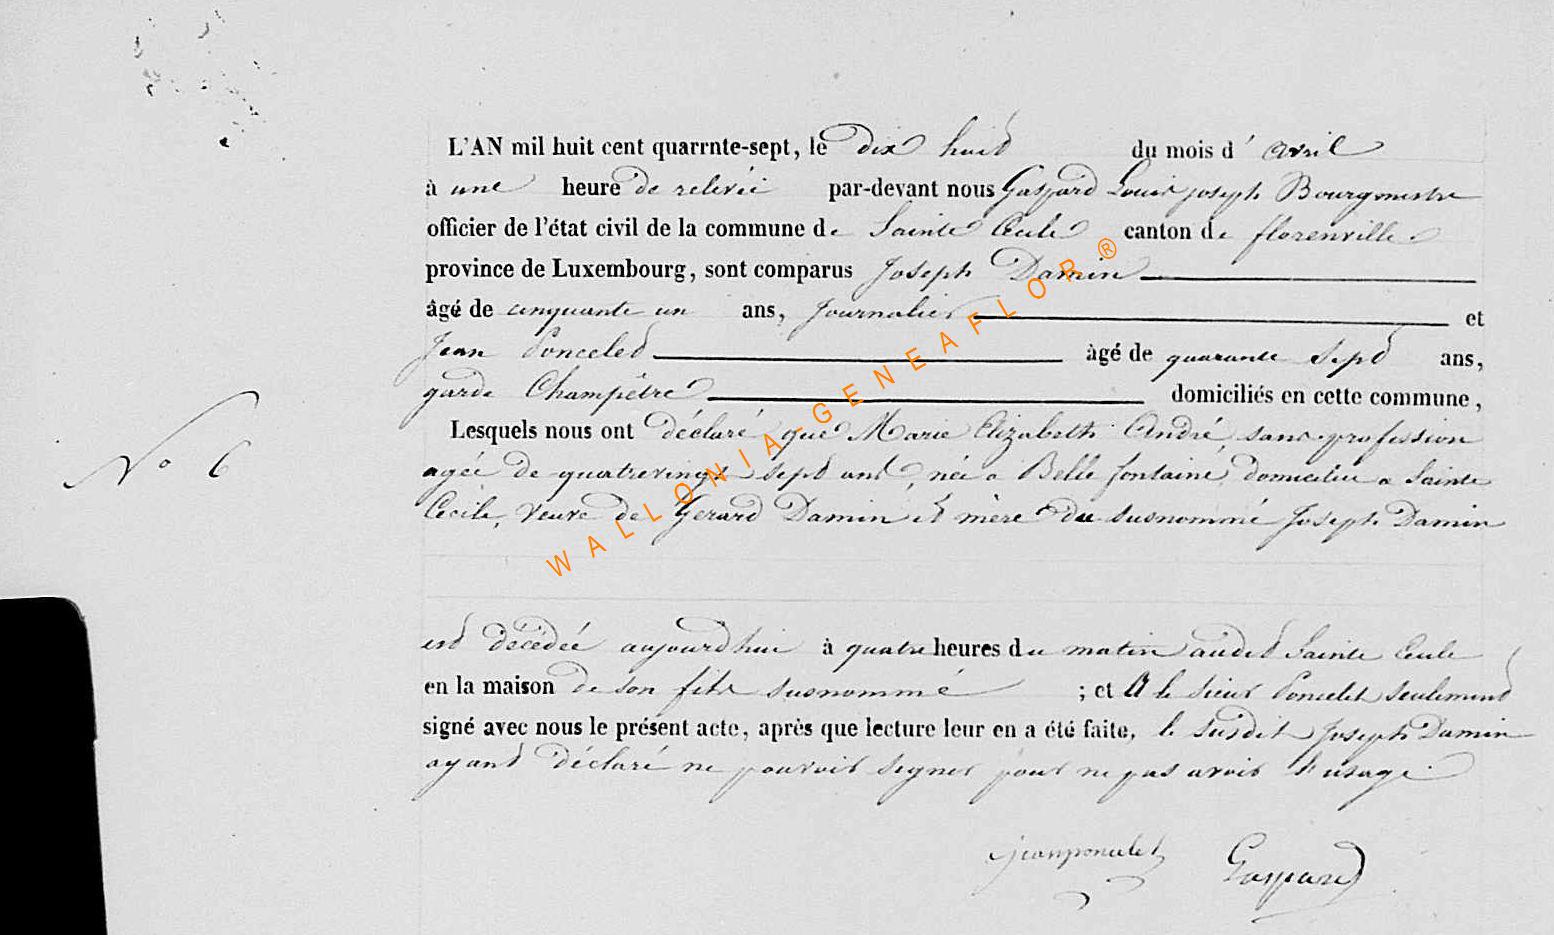 L'AN mil huit cent quarrnte-sept, le dix huit du mois d' avril
à une heure de relevée par-devant nous Gaspard Louis joseph Bourgmestre
officier de l'état civil de la commune de Sainte Cecile canton de florenville
province de Luxembourg, sont comparus Joseph Damin
âgé de cinquante un ans, Journalier et
Jean Poncelet âgé de quarante sept ans,
garde Champêtre domiciliés en cette commune,
Lesquels nous ont déclaré que Marie Elizabeth André sans profession
agée de quatrevingt sept ans, née a Belle fontaine, domiciliée a Sainte
Cécile, veuve de Gerard Damin et mère du susnommé Joseph Damin
N° 6
est décédée aujourdhui à quatre heures du matin audit Sainte Cecile
en la maison de son fils susnommé ; et a le sieur Poncelet seulement
signé avec nous le présent acte, après que lecture leur en a été faite, le susdit Joseph Damin
ayant déclaré ne pouvoir signer pour ne pas avoir l'usage.
jean poncelet Gaspard
WALLONIA-GENEAFLOR®